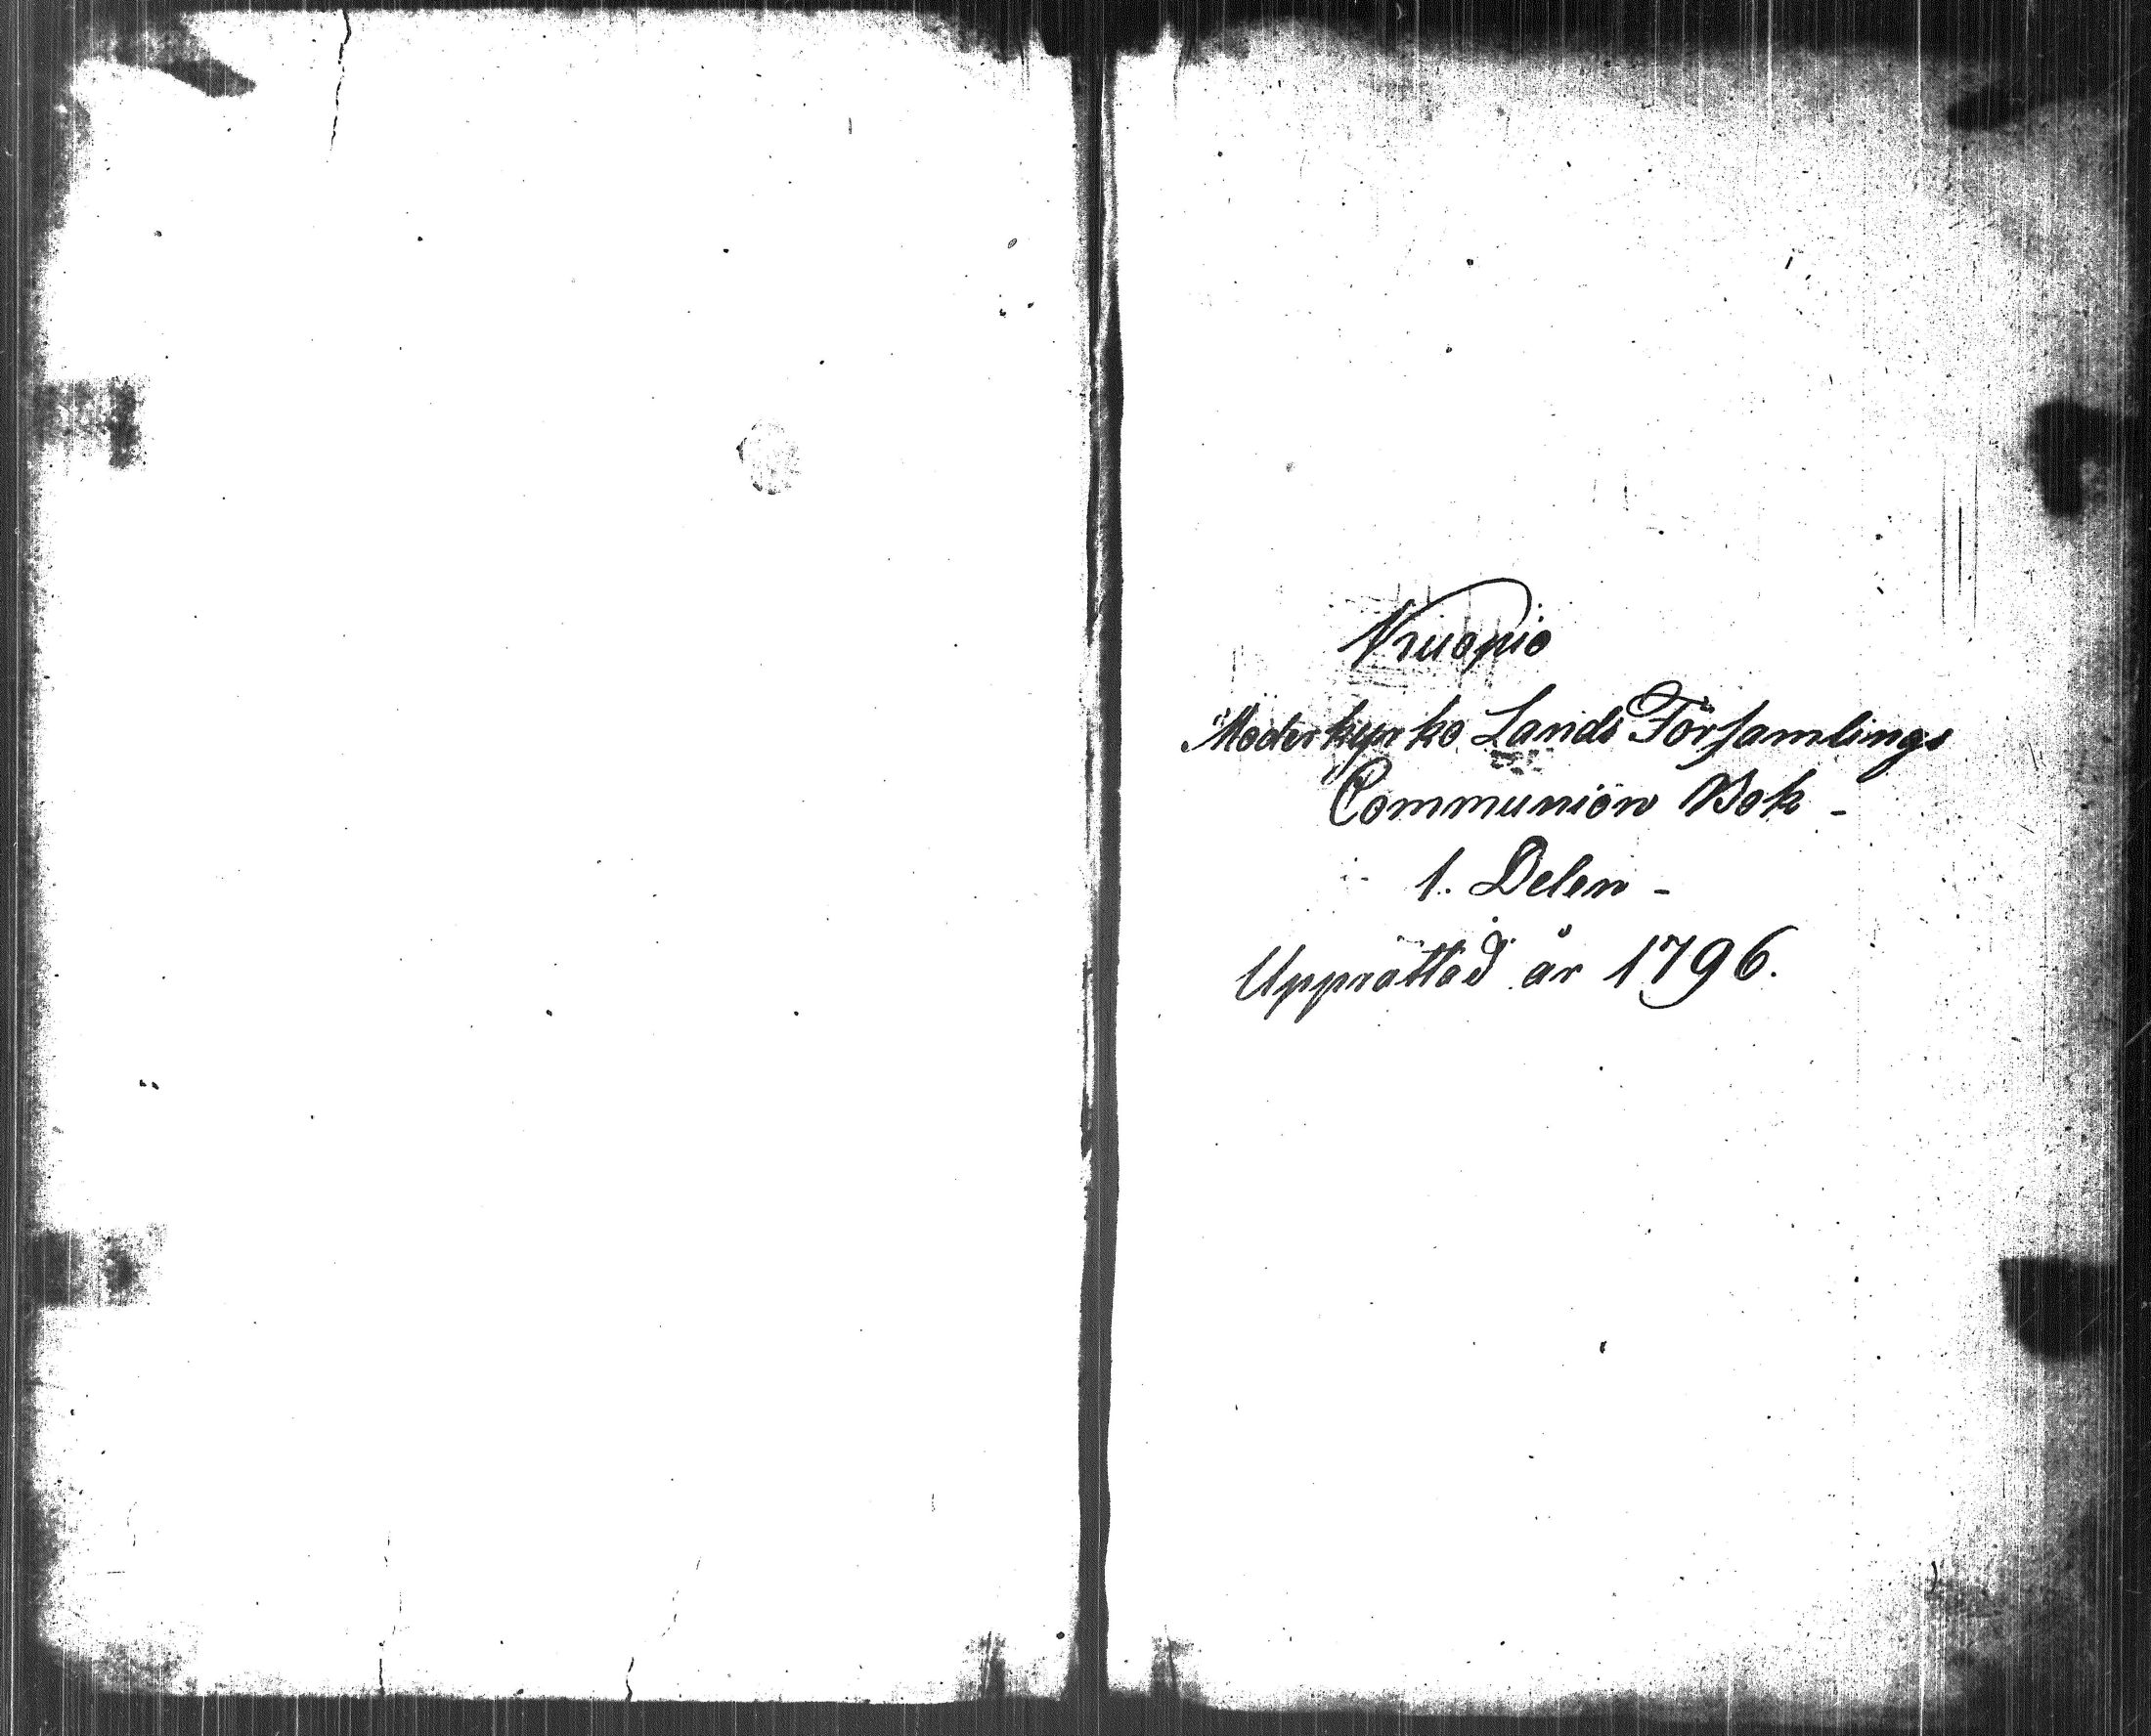 Kuopio
Moderkyrko Lands Församlings
Communion Bok -
1. Delen -
Upprättad år 1796.